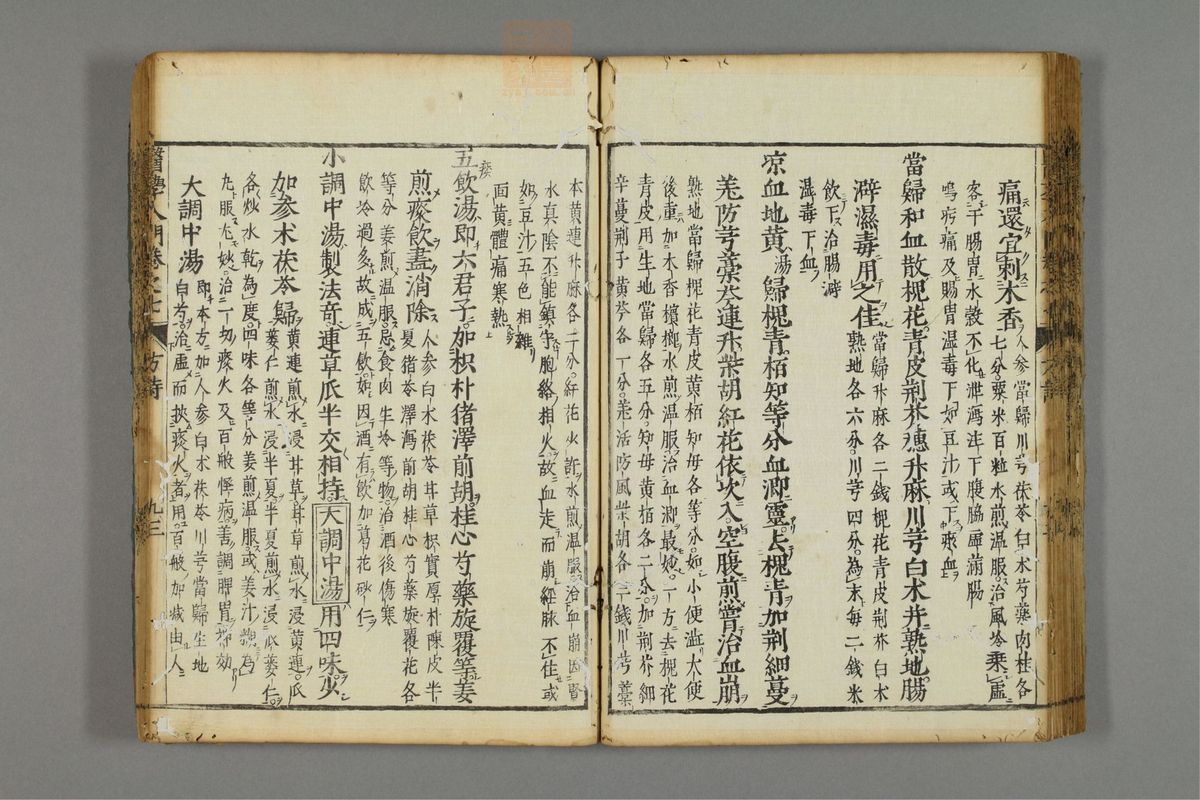 痛還宜刺木香人參當歸川芎茯苓白朮芍藥肉桂各
七分粟米百粒水煎温服治風冷乗虚
客于腸胃水穀不化泄瀉注下腹脇虚滿腸
鳴㽲痛及腸胃湿毒下如豆汁或下瘀血
當歸和血散槐花青皮荆芥穗升麻川芎白朮并熟地腸
澼濕毒用之佳當歸升麻各二錢槐花青皮荆芥白朮
熟地各六分川芎四分為末毎二錢米
飲下治腸澼
湿毒下血
凉血地黄湯歸槐青栢知等分血衂靈去槐青加荆細蔓
羗防芎藁芩連升柴胡紅花依次入空腹煎嘗治血崩
熟地當歸槐花青皮黄栢知母各等分如小便澁大便
後重加木香檳榔水煎温服治血衂最妙一方去槐花
青皮用生地當歸各五分知母黄栢各二分加荆芥細
辛蔓荆子黄芩各一分羗活防風柴胡各三錢川芎藁
本黄連升麻各二分紅花少許水煎温服治血崩因腎
水真陰不能鎮守胞絡相火故血走而崩經脉不住或
如豆汁五色相雜
面黄體痛寒熱
五飲湯即六君子加枳朴猪澤前胡桂心芍藥旋覆等姜
煎痰飲盡消除人參白朮茯苓甘草枳實厚朴陳皮半
夏猪苓澤瀉前胡桂心芍藥旋覆花各
等分姜煎温服忌食肉生冷等物治酒後傷寒
飲冷過多故成五飲如因酒有飲加葛花砂仁
小調中湯製法奇連草瓜半交相持大調中湯用四味少
加參朮茯苓歸黄連煎水浸甘草甘草煎水浸黄連瓜
蔞仁煎水浸半夏半夏煎水浸瓜蔞仁
各炒水乾為度四味各等分姜煎温服或姜汁糊為
丸服尤妙治一切痰火及百般怪病善調脾胃神効
大調中湯即本方加人參白朮茯苓川芎當歸生地
白芍治虚而挾痰火者用百般加减由人
醫學入門卷之七 方詩 九三